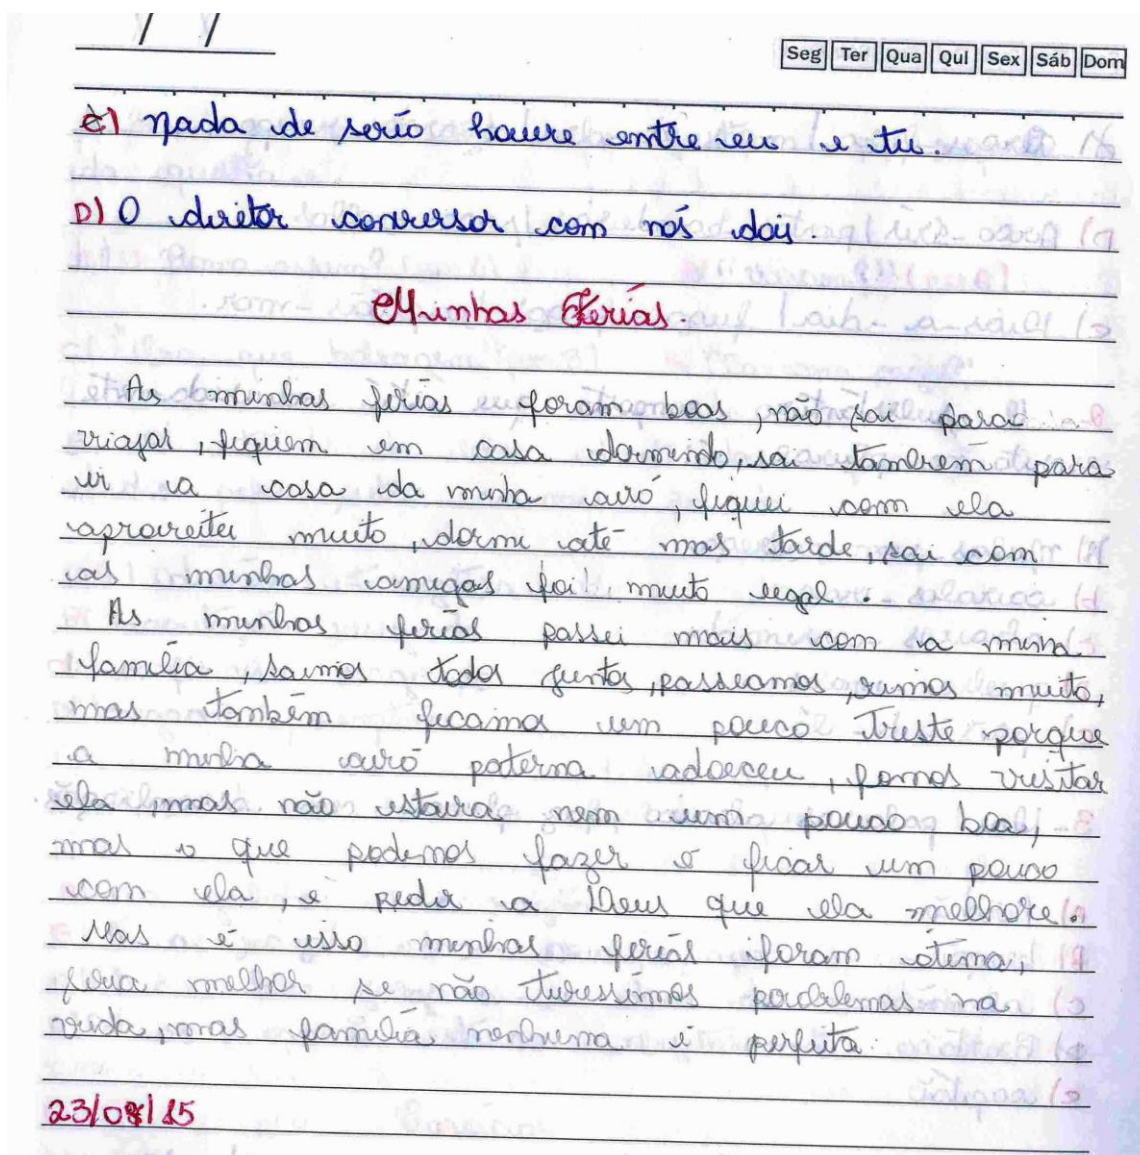 / /
Seg Ter Qua Qui Sex Sáb Dom
c) nada de serio houve entre eu e tu.
D) O diretor conversor com nós dois.
Minhas Ferias.
As minhas ferias foram boas, não sai para
viajar, fiquem em casa dormindo, sai tambem para
ir a casa da minha avó, fiquei com ela
aproveitei muito, dormi até mas tarde, sai com
as minhas amigas foi muito legal.
As minhas ferias passei mais com a minha
família, saimos todos juntos, passeamos, rimos muito,
mas também ficamos um pouco triste porque
a minha avó paterna adoeceu, fomos visitar
ela, mas não estava nem um pouco boa,
mas o que podemos fazer é ficar um pouco
com ela, e pedir a Deus que ela melhore.
Mas é isso minhas ferias foram otima,
seria melhor se não tivessimos problemas na
vida, mas familia nenhuma é perfeita.
23/08/15